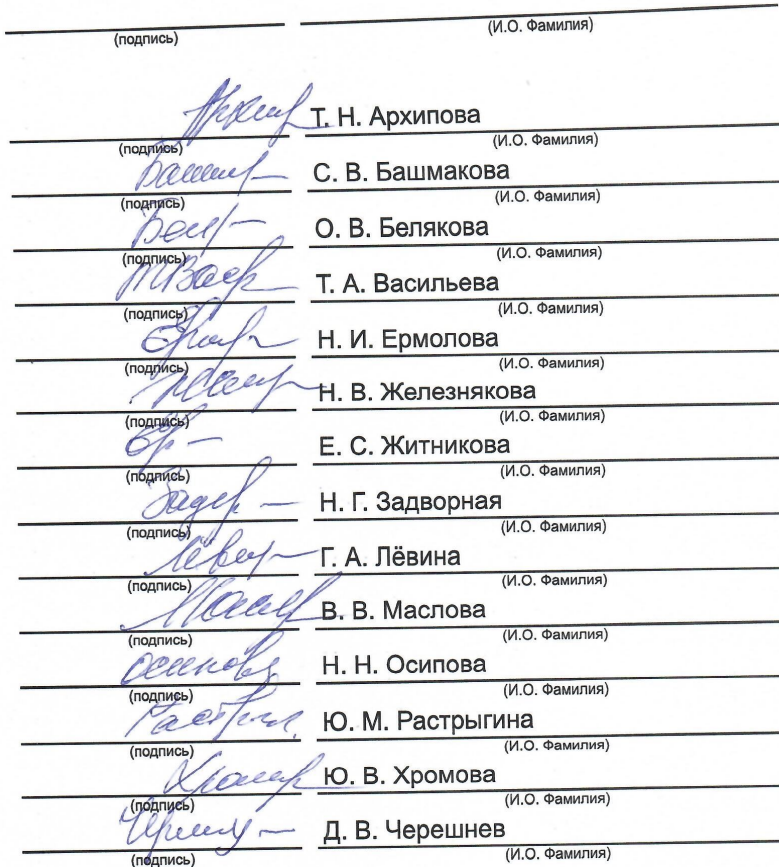 (подпись) (И.О. Фамилия)
Т. Н. Архипова
(подпись) (И.О. Фамилия)
С. В. Башмакова
(подпись) (И.О. Фамилия)
О. В. Белякова
(подпись) (И.О. Фамилия)
Т. А. Васильева
(подпись) (И.О. Фамилия)
Н. И. Ермолова
(подпись) (И.О. Фамилия)
Н. В. Железнякова
(подпись) (И.О. Фамилия)
Е. С. Житникова
(подпись) (И.О. Фамилия)
Н. Г. Задворная
(подпись) (И.О. Фамилия)
Г. А. Лёвина
(подпись) (И.О. Фамилия)
В. В. Маслова
(подпись) (И.О. Фамилия)
Осипова Н. Н. Осипова
(подпись) (И.О. Фамилия)
Ю. М. Растрыгина
(подпись) (И.О. Фамилия)
Ю. В. Хромова
(подпись) (И.О. Фамилия)
Д. В. Черешнев
(подпись) (И.О. Фамилия)